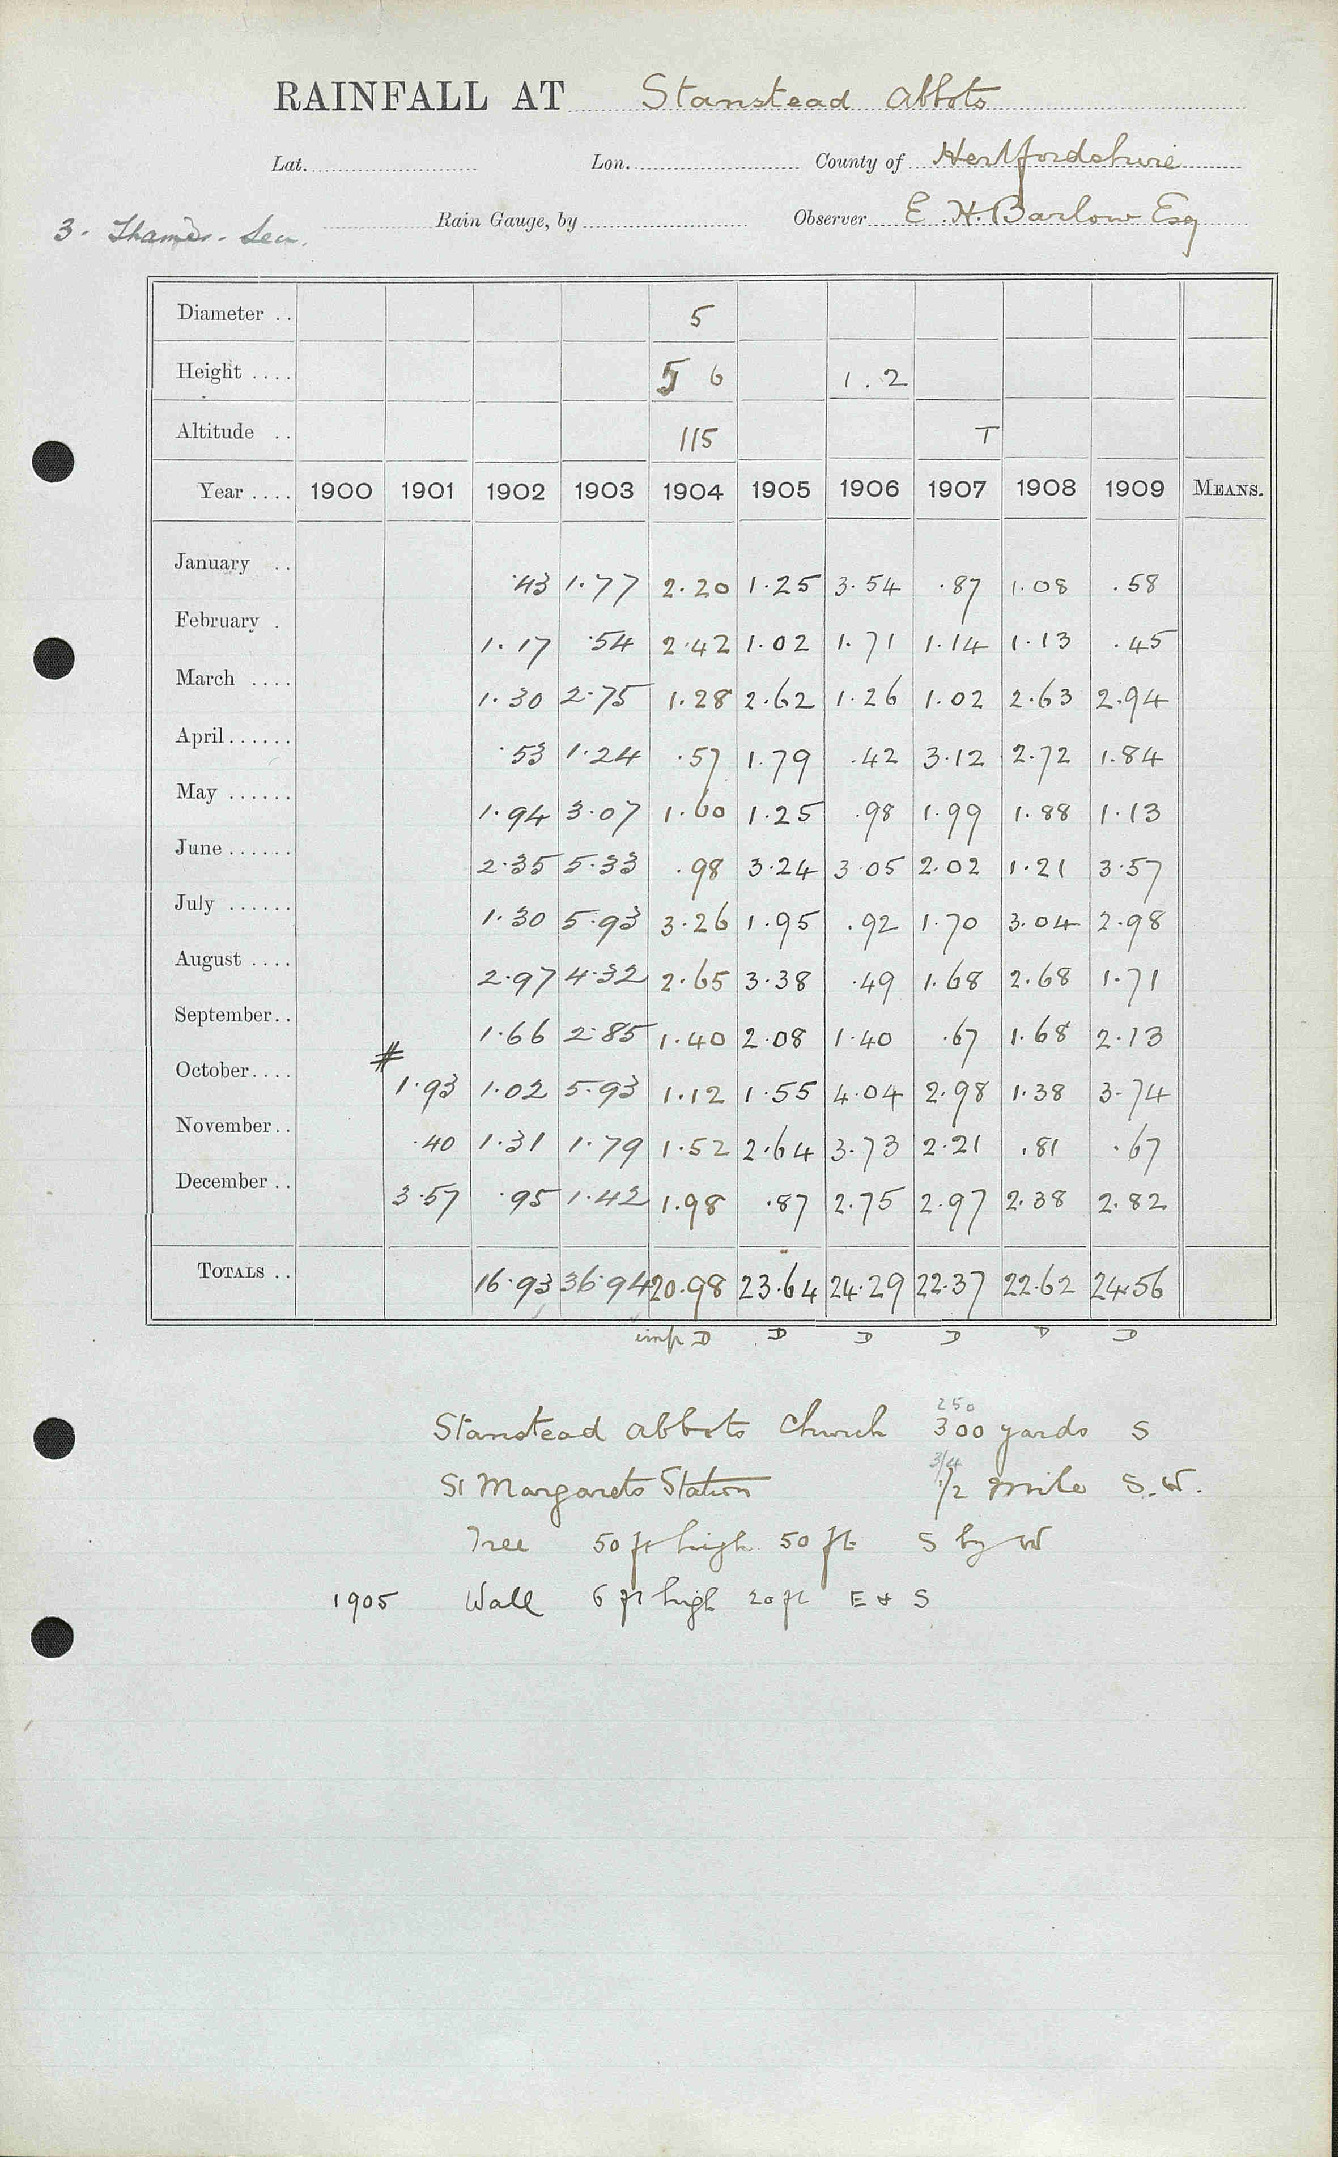 RAINFALL AT Stanstead Abbots
Lat. Lon. County of Hertfordshire
3. Thames - Lea. Rain Gauge, by Observer E. H. Barlow Esq
Diameter .. 5
Height .... 5 6 1.2
Altitude .. 115 T
Year .... 1900 1901 1902 1903 1904 1905 1906 1907 1908 1909 MEANS.
January .. .43 1.77 2.20 1.25 3.54 .87 1.08 .58
February . 1.17 .54 2.42 1.02 1.71 1.14 1.13 .45
March .... 1.30 2.75 1.28 2.62 1.26 1.02 2.63 2.94
April...... .53 1.24 .57 1.79 .42 3.12 2.72 1.84
May ...... 1.94 3.07 1.60 1.25 .98 1.99 1.88 1.13
June...... 2.35 5.33 .98 3.24 3.05 2.02 1.21 3.57
July ...... 1.30 5.93 3.26 1.95 .92 1.70 3.04 2.98
August .... 2.97 4.32 2.65 3.38 .49 1.68 2.68 1.71
September.. 1.66 2.85 1.40 2.08 1.40 .67 1.68 2.13
October.... # 1.93 1.02 5.93 1.12 1.55 4.04 2.98 1.38 3.74
November.. .40 1.31 1.79 1.52 2.64 3.73 2.21 .81 .67
December .. 3.57 .95 1.42 1.98 .87 2.75 2.97 2.38 2.82
TOTALS .. 16.93 36.94 20.98 23.64 24.29 22.37 22.62 24.56
imp D D D D D D
250
Stanstead Abbots Church 300 yards S
3/4
St Margarets Station 1/2 mile S.W.
Tree 50 ft high 50 ft S by W
1905 Wall 6 ft high 20 ft E & S